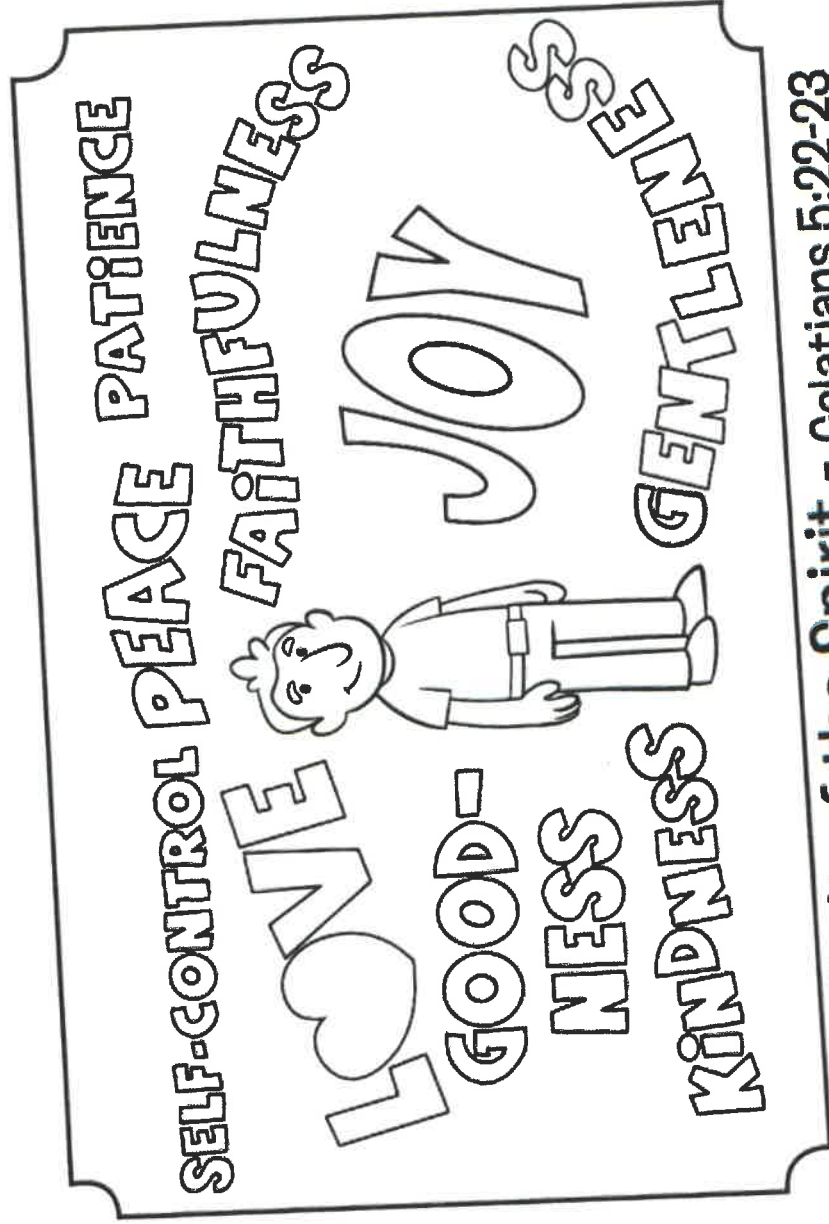 SELF-CONTROL PEACE PATIENCE
LOVE FAITHFULNESS
GOOD-
NESS
JOY
KINDNESS
GENTLENESS
the Spirit - Galatians 5:22-23